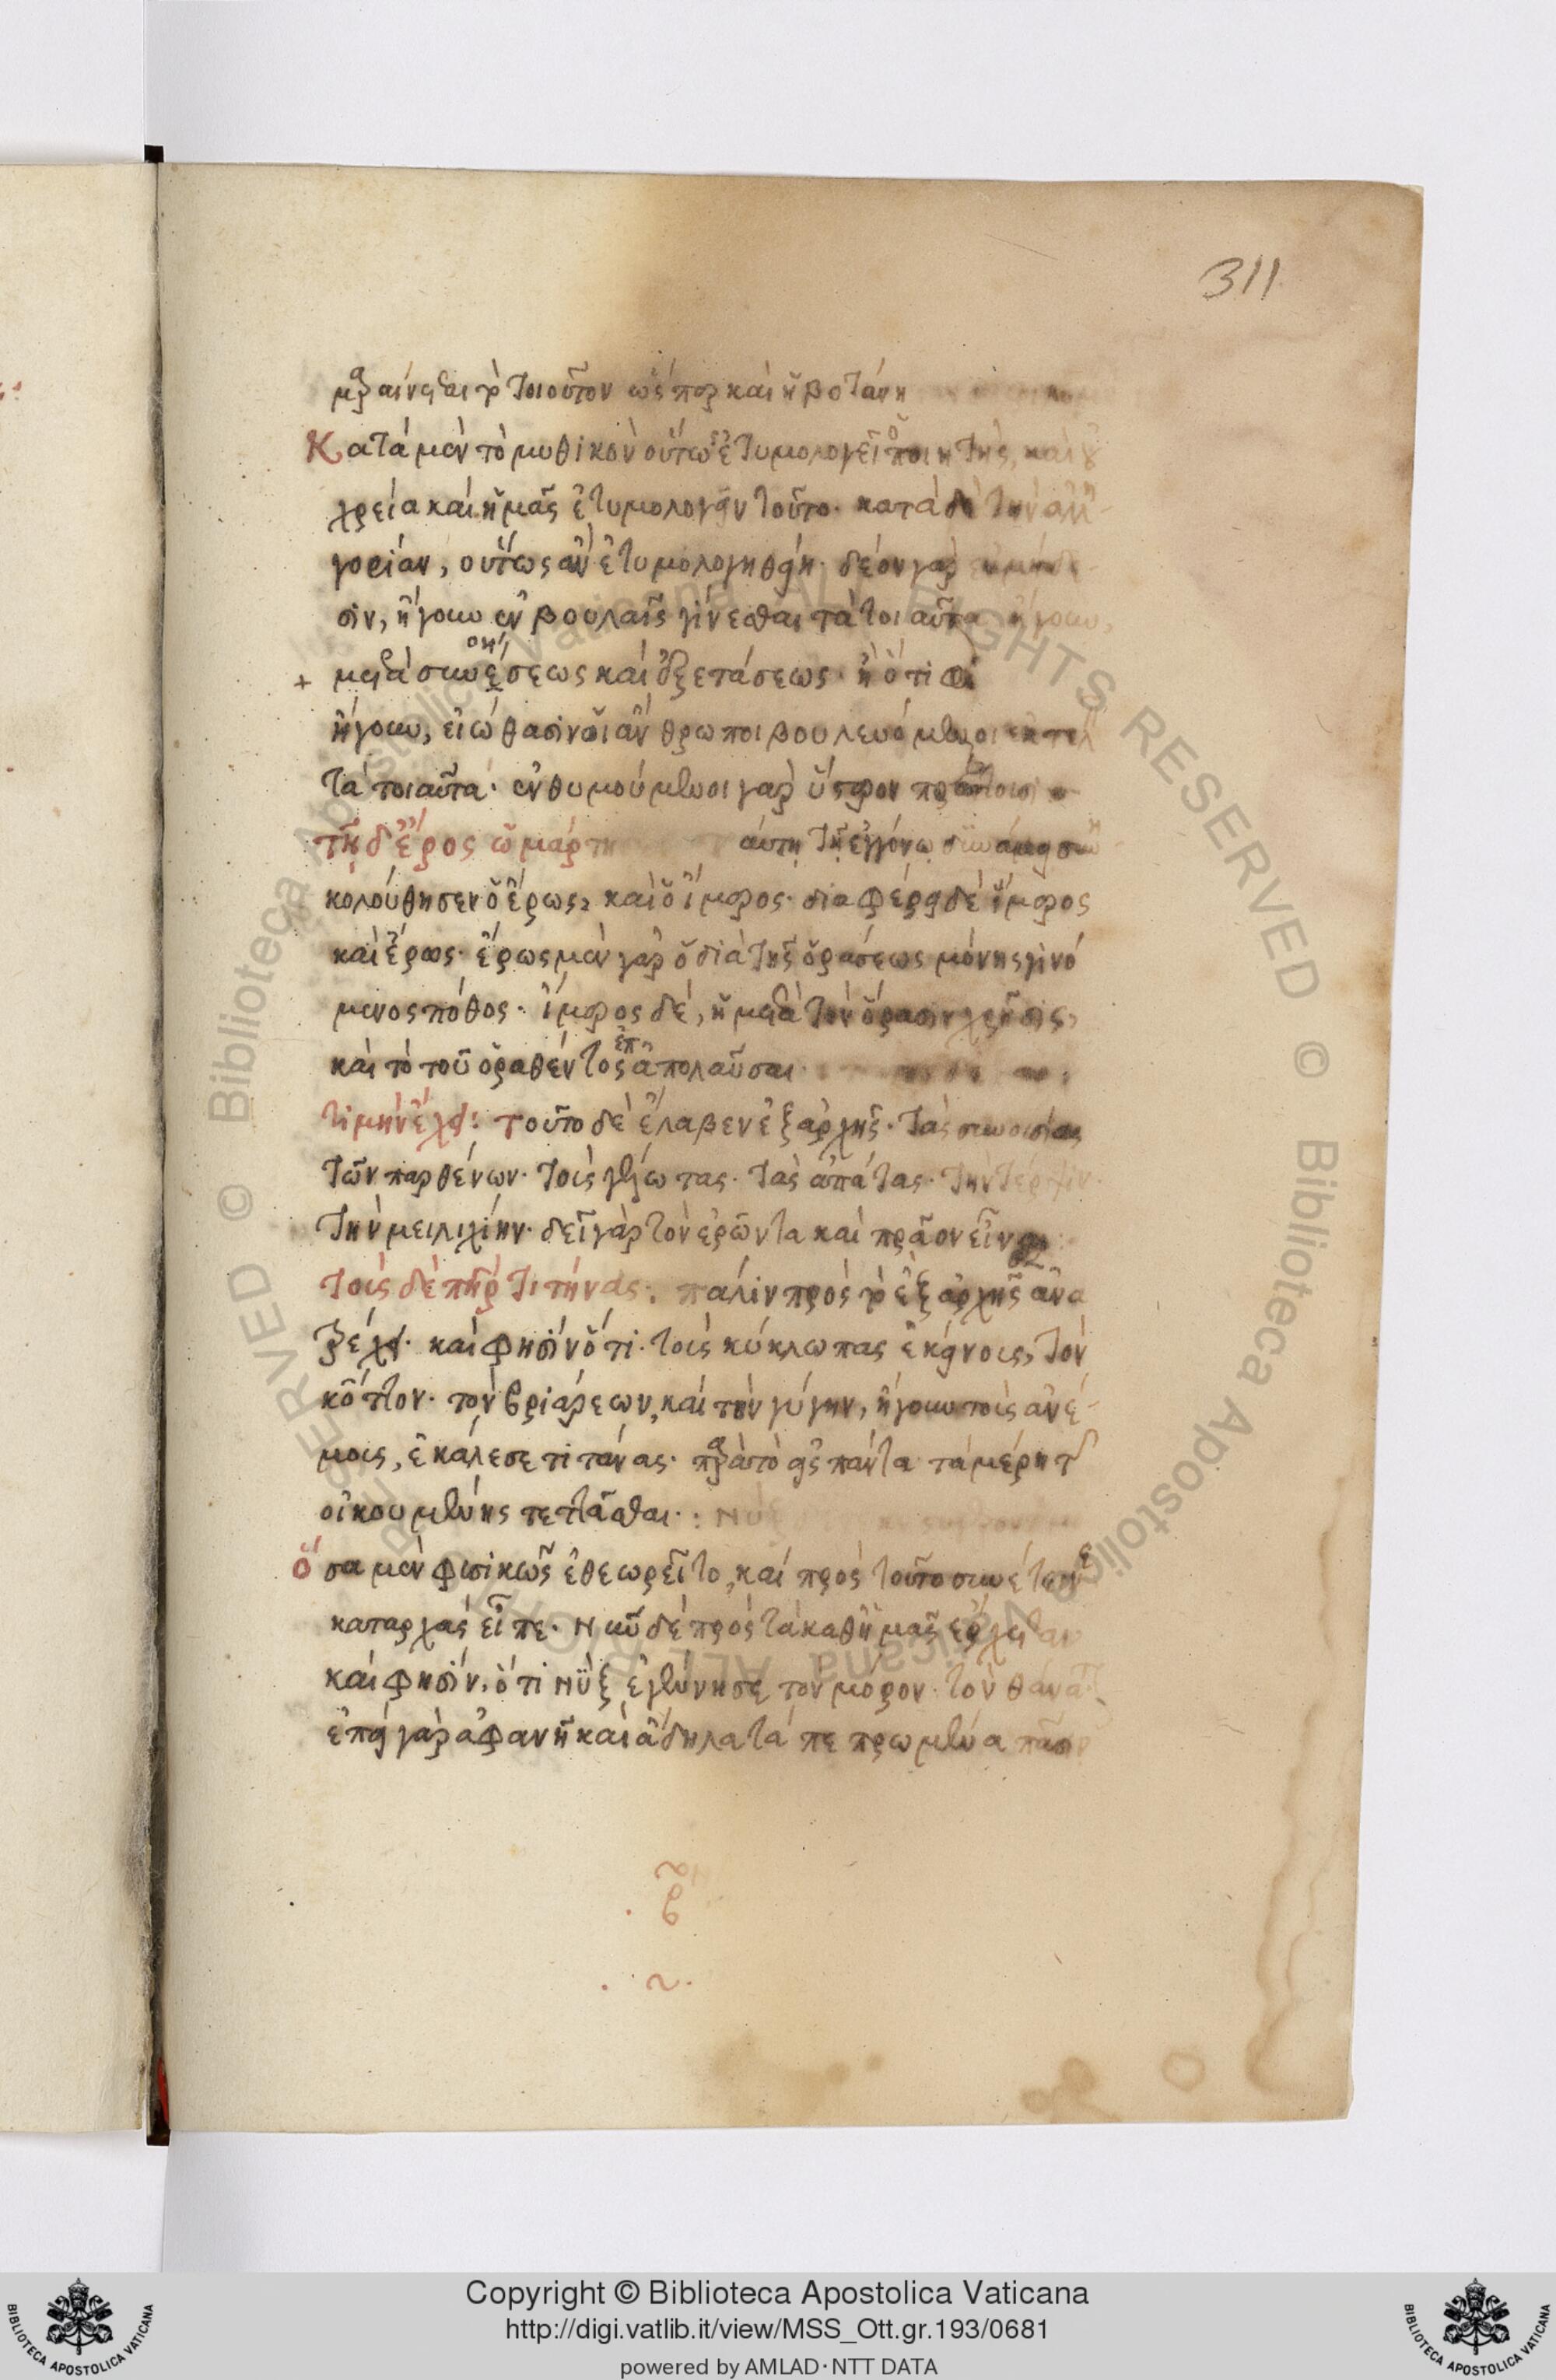 311
μαραίνεται τὸ τοιοῦτον ὥσπερ καὶ ἡ βοτάνη
Κατὰ μὲν τὸ μυθικὸν οὕτως ἐτυμολογεῖ ὁ ποιητής, καὶ
χρεία καὶ ἡμᾶς ἐτυμολογεῖν τοῦτο· κατὰ δὲ τὴν ἀλλη-
γορίαν, οὕτως ἂν ἐτυμολογηθείη· δέον γὰρ
σιν, ἤγουν ἐν βουλαῖς γίνεσθαι τὰ τοιαῦτα ἤγουν,
+ μετὰ σκέψεως καὶ ἐξετάσεως· ἢ ὅτι
ἤγουν, εἰώθασιν οἱ ἄνθρωποι βουλευόμενοι
τὰ τοιαῦτα· ἐνθυμούμενοι γὰρ ὕστερον
τῇ δ' ἔρος ὡμάρτη αὐτῇ τῇ
κολούθησεν ὁ ἔρως, καὶ ὁ ἵμερος· διαφέρει δὲ ἵμερος
καὶ ἔρως· ἔρως μὲν γὰρ ὁ διὰ τῆς ὁράσεως μόνης γινό
μενος πόθος· ἵμερος δέ, ἡ μετὰ τὴν ὅρασιν χρῆσις,
καὶ τὸ τοῦ ὁραθέντος ἀπολαῦσαι
τιμὴν ἔχει: τοῦτο δὲ ἔλαβεν ἐξαρχῆς· τὰς συνουσίας
τῶν παρθένων· τοὺς γέλωτας· τὰς ἀπάτας· τὴν τέρψιν·
τὴν μειλιχίην· δεῖ γὰρ τὸν ἐρῶντα καὶ πρᾶον εἶναι
τοὺς δὲ πατὴρ τιτήνας· πάλιν πρὸς τὸ ἐξ ἀρχῆς ἀνα
τρέχει· καὶ φησὶν ὅτι· τοὺς κύκλωπας ἐκείνους, τὸν
κόττον· τὸν βριάρεων, καὶ τὸν γύγην, ἤγουν τοὺς ἀνέ-
μους, ἐκάλεσε τιτάνας· παρὰ τὸ εἰς πάντα τὰ μέρη τῆς
οἰκουμένης τετᾶσθαι·:
ὅσα μὲν φυσικῶς ἐθεωρεῖτο, καὶ πρὸς τοῦτο
καταρχὰς εἶπε· νῦν δὲ πρὸς τὰ καθ' ἡμᾶς ἔρχεται
καὶ φησίν, ὅτι νὺξ ἐγέννησε τὸν μόρον· τὸν θάνατον
ἐπεὶ γὰρ ἀφανῆ καὶ ἄδηλα τὰ πεπρωμένα πᾶσιν
Copyright © Biblioteca Apostolica Vaticana
http://digi.vatlib.it/view/MSS_Ott.gr.193/0681
powered by AMLAD·NTT DATA